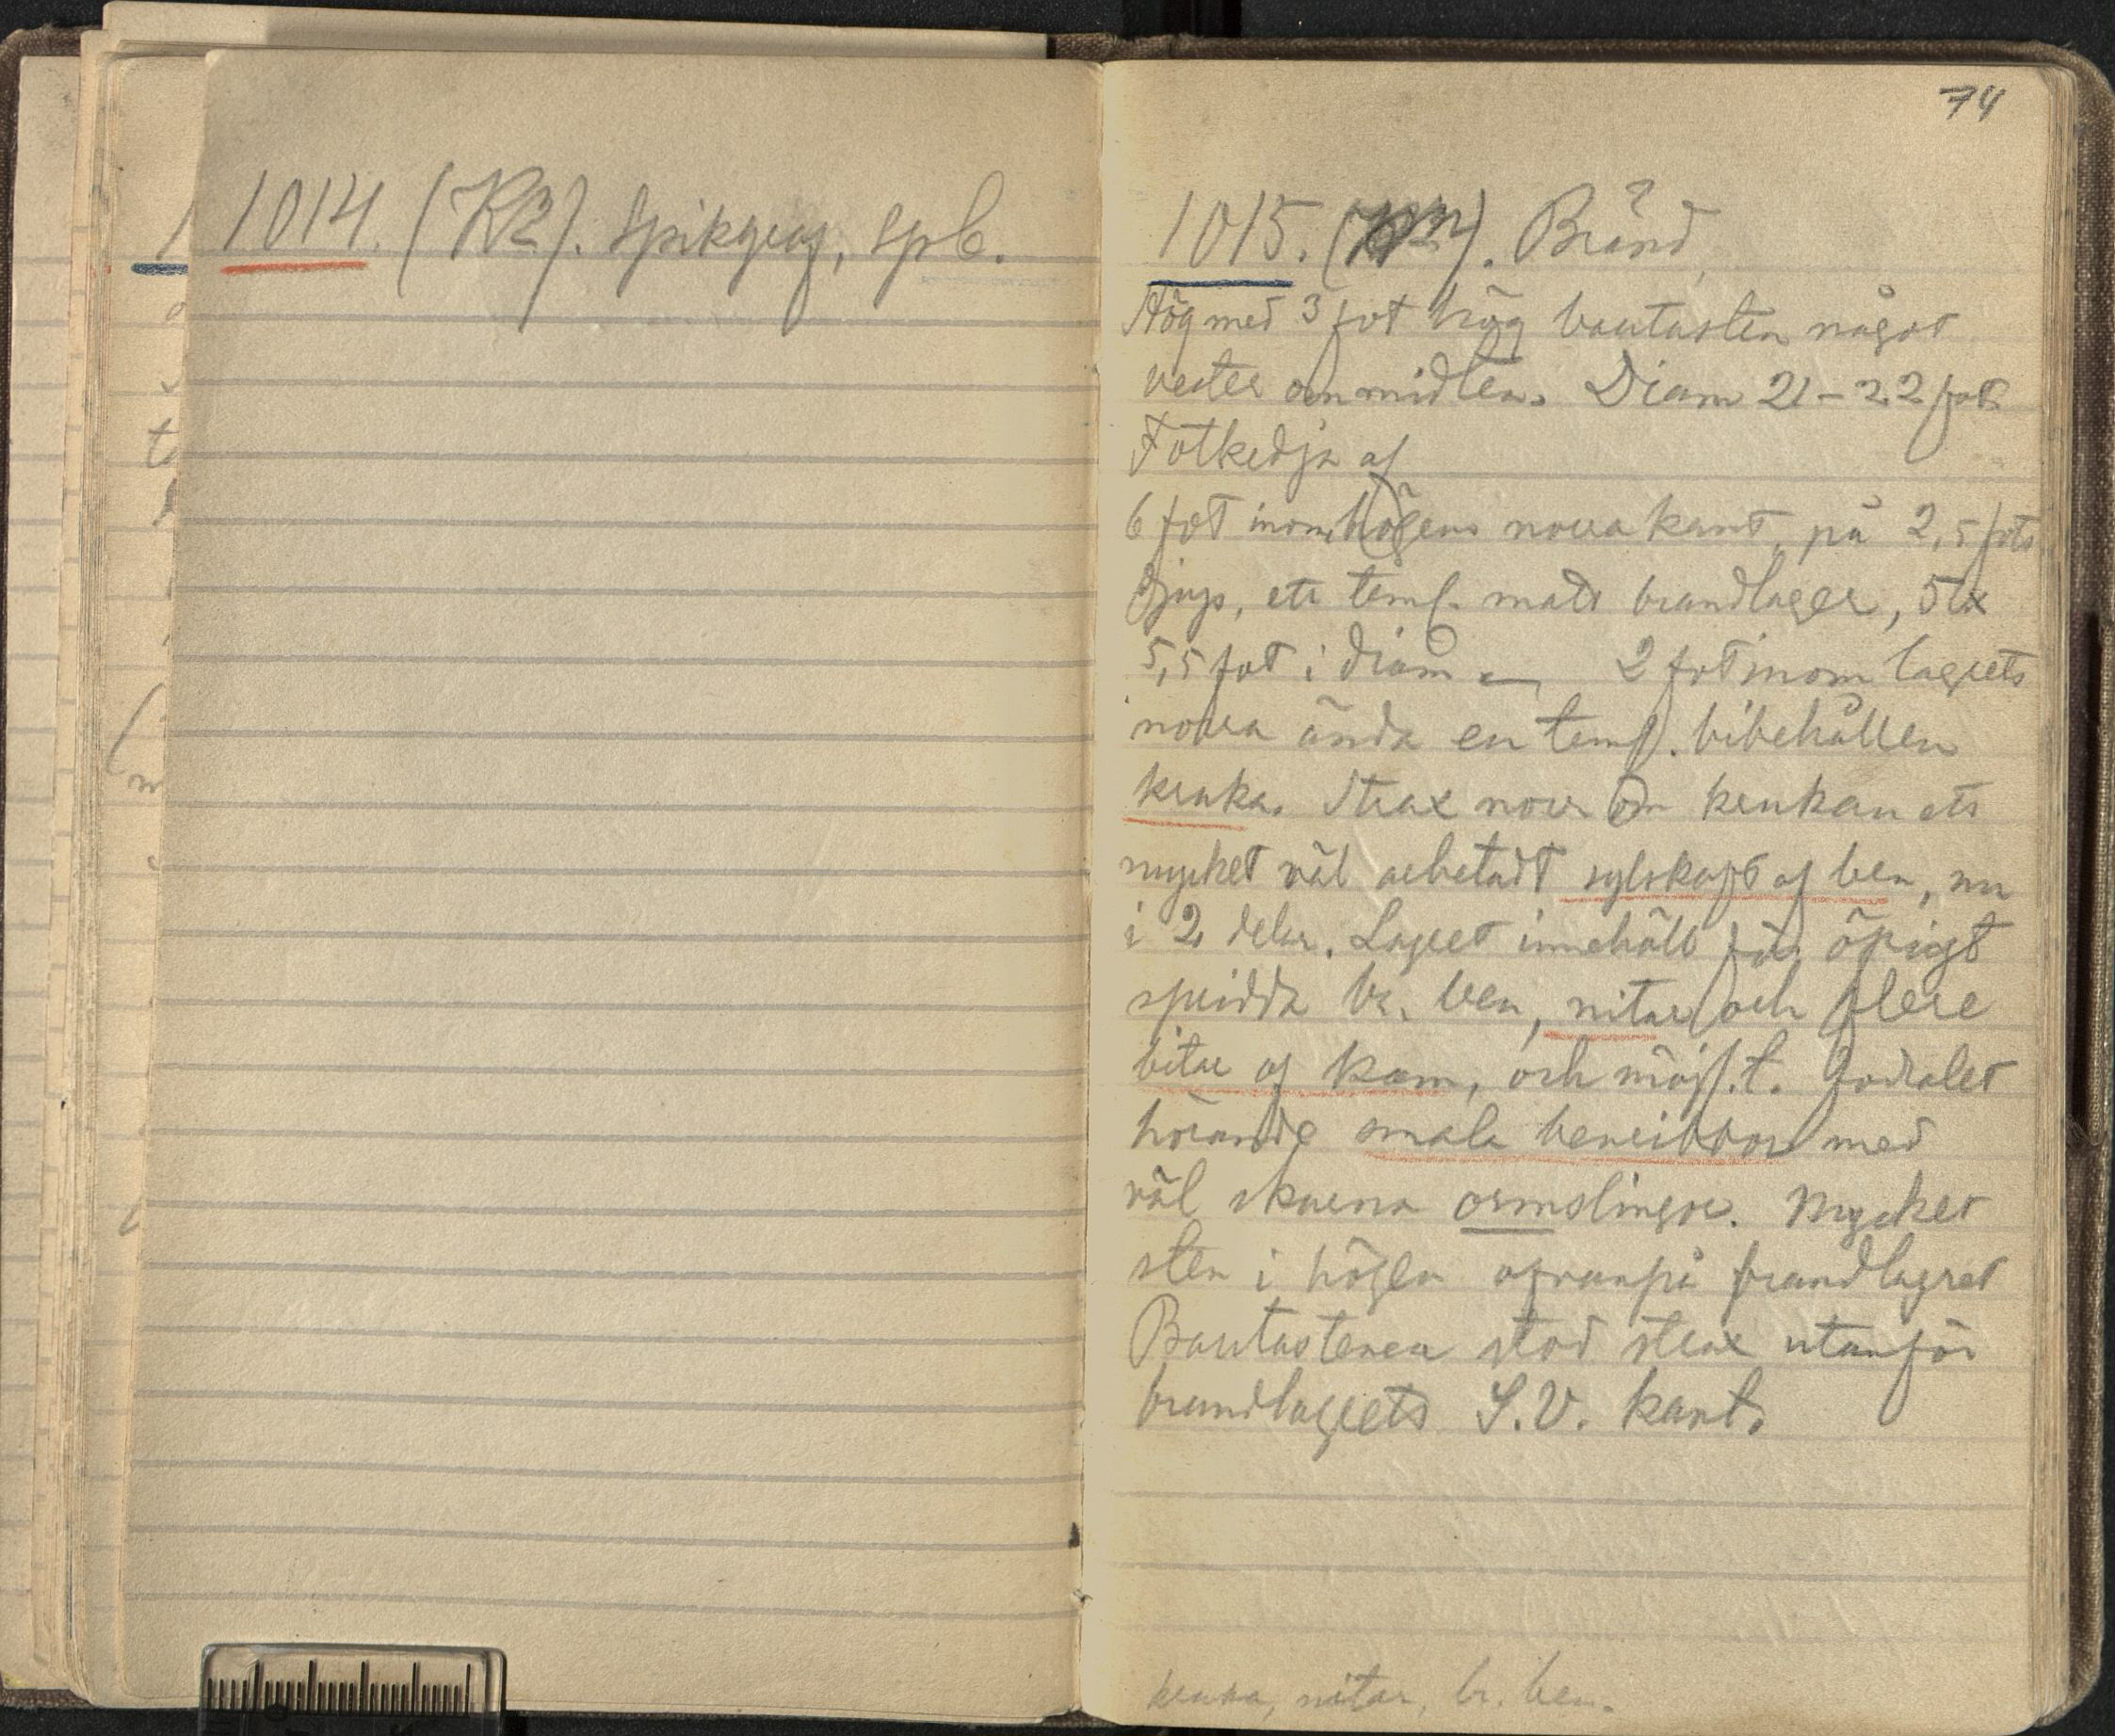 1014. (K2). Spikgraf, spb.
74
1015. (K2n). Bränd,
Hög med 3 fot hög bautasten något
vester om midten. Diam 21-22 fot.
Fotkedja af
6 fot inom högens norra kant, på 2,5 fots
djup, ett teml. matt brandlager, 5 a
5,5 fot i diam 2 fot inom lagrets
norra ända en teml. bibehållen
kruka. Strax norr om krukan ett
mycket väl arbetadt sylskaft af ben, nu
i 2 delar. Lagret innehöll för öfrigt
spridda br. ben, nitar och flere
bitar af kam, och möjl. t. fodralet
hörande smala benribbor med
väl skurna ormslingor. Mycket
sten i högen ofvanpå brandlagret
Bautastenen stod strax utanför
brandlagrets S.V. kant.
kruka, nitar, br. ben.